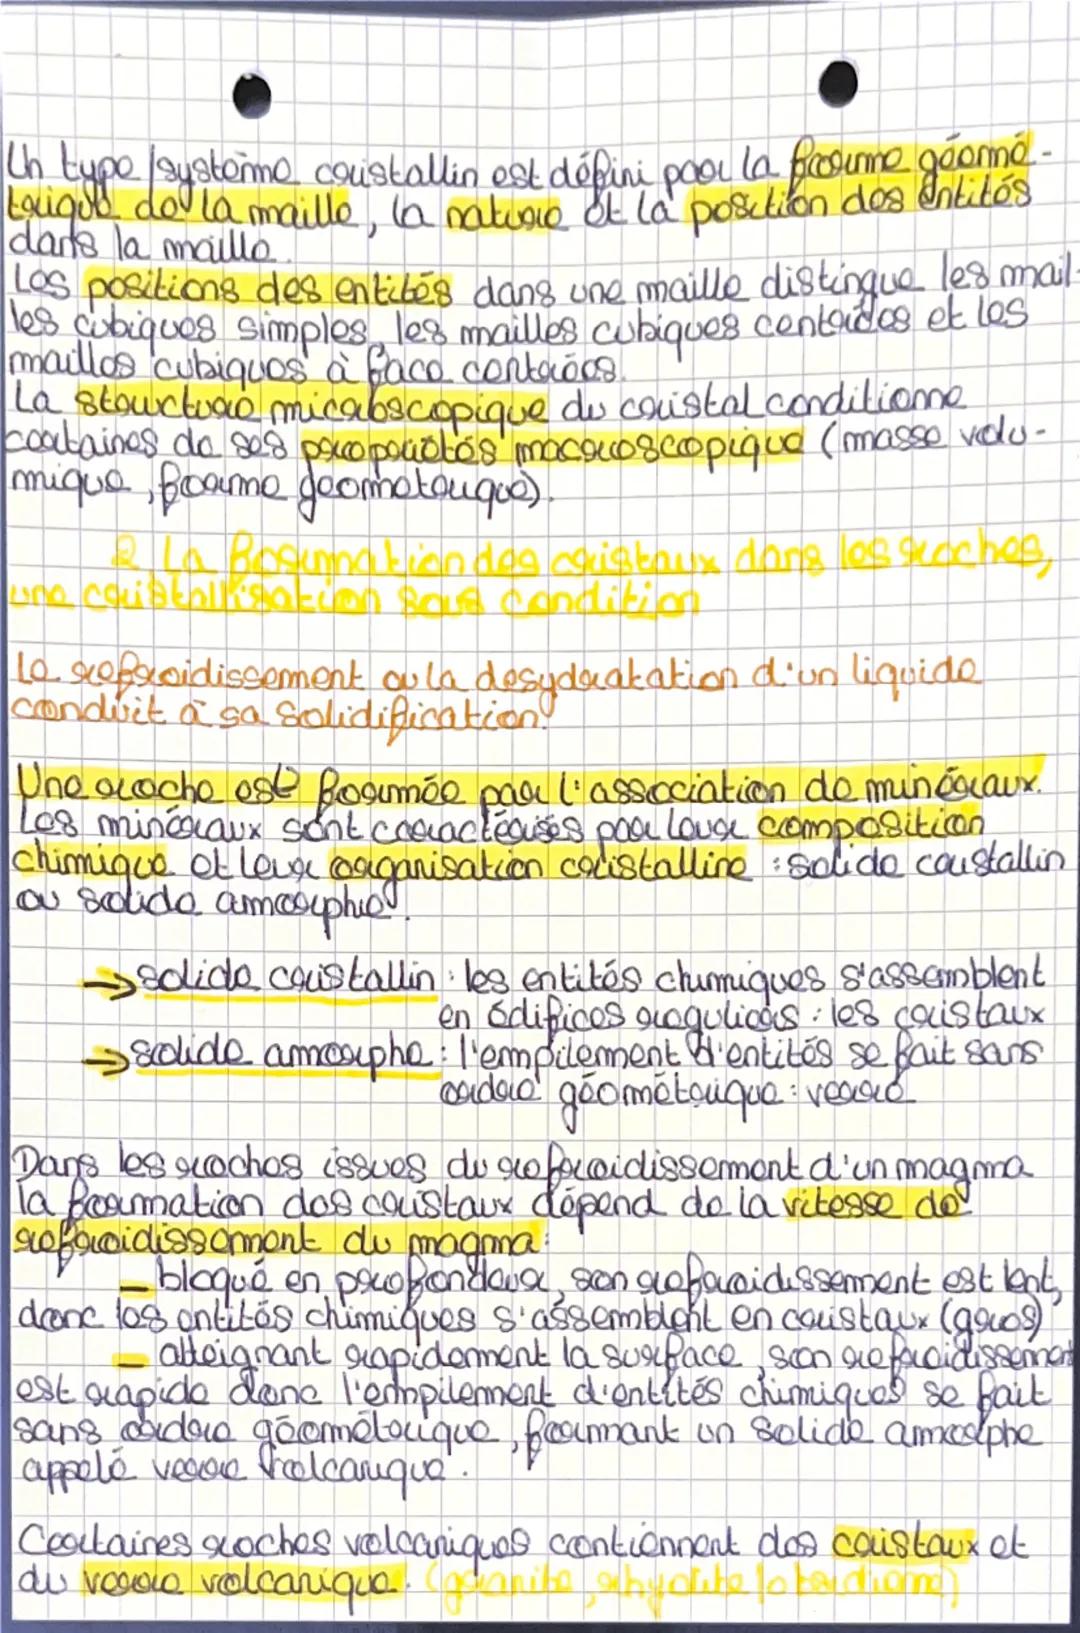 Un type/système cristallin est défini par la forme géomé-
trique de la maille, la nature et la position des entités
dans la maille.
Les positions des entités dans une maille distingue les mail-
les cubiques simples, les mailles cubiques centrées et les
mailles cubiques à face centrées.
La structure microbscopique du cristal conditionne
certaines de ses propriétés macroscopique (masse volu-
mique, forme géometrique).
2 La formation des cristaux dans les roches,
une cristallisation sous condition
Le refroidissement ou la desydratation d'un liquide
conduit à sa solidification.
Une roche est formée par l'association de minéraux.
Les minéraux sont caractérisés par leur composition
chimique et leur organisation cristalline : solide cristallin
ou solide amorphe.
→ solide cristallin : les entités chimiques s'assemblent
en édifices réguliers : les cristaux
→ solide amorphe : l'empilement d'entités se fait sans
ordre géométrique : verre
Dans les roches issues du refroidissement d'un magma
la formation des cristaux dépend de la vitesse de
refroidissement du magma :
- bloqué en profondeur, son refroidissement est lent,
donc les entités chimiques s'assemblent en cristaux (gros)
- atteignant rapidement la surface, son refroidissement
est rapide donc l'empilement d'entités chimiques se fait
sans ordre géométrique, formant un solide amorphe
appelé verre volcanique.
Certaines roches volcaniques contiennent des cristaux et
du verre volcanique. (granite, rhyolite